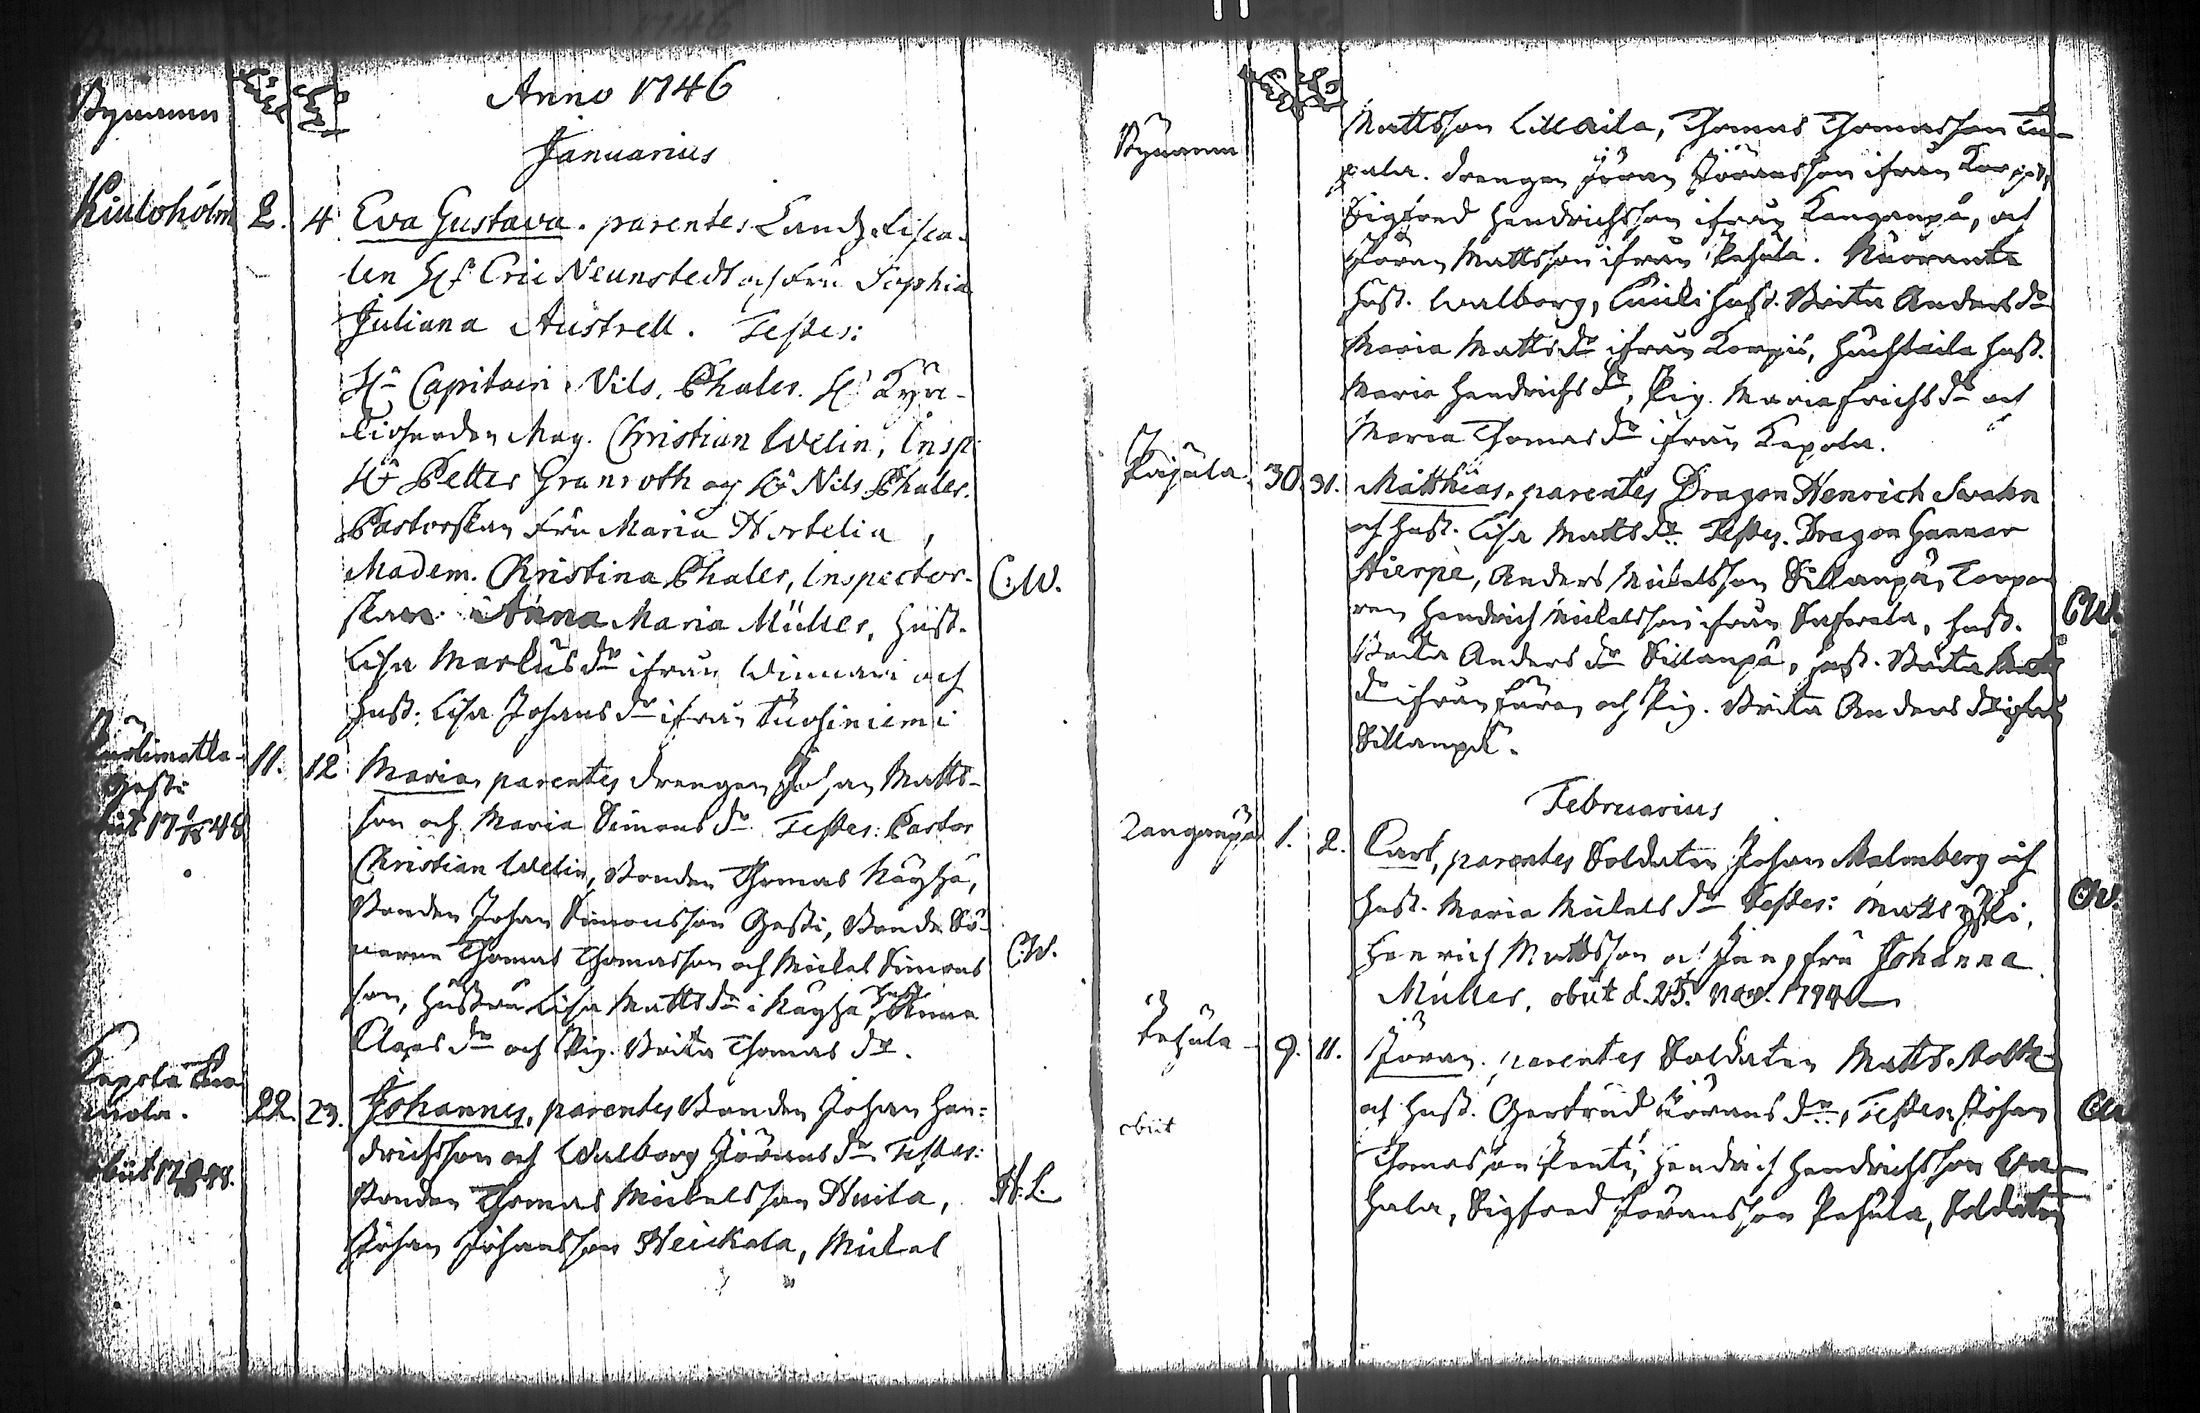 Anno 1746
Januarius
Bynamn
Kiuloholm 2. 4. Eva Gustava. parentes Landz Fisca-
len Hr Eric Neunstedt och Fru Sophia
Juliana Austrell. Testes:
Hr Capitain Nils Thales. Hr Kyr-
kioherden Mag. Christian Welin, Insp.
Hr Petter Granroth och Hr Nils Thales.
Pastorskan Fru Maria Hortelia,
Madem. Christina Thales, Inspector- C.W.
skan Anna Maria Müller, Hust.
Lisa Markus dr ifrån Winnari och
Hust. Lisa Johans dr ifrån Tuohiniemi
Gasti 11. 12 Maria, parentes Drengen Johan Matts-
son och Maria Simons dr. Testes: Pastor
Christian Welin, Bonden Thomas Käyhä,
Bonden Johan Simonsson Gasti, Bonde Sö-
nerne Thomas Thomasson och Mickel Simons C.W.
son, Hustru Lisa Matts dr i Käyhä, Hust. Anna
Claes dr och Pig. Brita Thomas dr.
Kepola
22. 23. Johannes, parentes Bonden Johan Hen-
drichsson och Walborg Jörans dr Testes:
Bonden Thomas Mickelsson Huila, H.L.
Johan Johansson Heickola, Mickel
Bynamn
Mattsson Lillaila, Thomas Thomasson Tu-
pala. Drengen Jöran Jöransson ifrån Korpi,
Sigfred Hendrichsson ifrån Kanganpä, och
Jöran Mattsson ifrån Pehula.
Hust. Walborg, Hust. Brita Anders dr
Maria Matts dr ifrån Korpis, Hust.
Maria Hendrichs dr, Pig. Maria Erichs dr och
Maria Thomas dr ifrån Kepola.
Pajula. 30. 31. Matthias, parentes Dragon Henrich Swahn
och Hust. Lisa Matts dr. Testes. Dragon Gunnar
Hierpe, Anders Mickelsson Sillanpä, Torpa-
ren Hendrich Mickelsson ifrån Hust. C.W.
Brita Anders dr Sillanpä, Hust. Brita
dr ifrån och Pig. Brita Anders dr ifrån
Sillanpä.
Februarius
Kanganpä 1. 2. Carl, parentes Soldaten Johan Malmberg och
Hust. Maria Mickels dr Testes: Matts C.W.
Henrich Mattsson och Jungfru Johanna
Müller, obiit d. 25. Nov.
Pehula 9. 11. Jöran. parentes Soldaten Matts
obiit
och Hust. Gertrud Jörans dr, Testes: Johan CW
Thomasson Penti, Hendrich Hendrichsson
hala, Sigfred Jöransson Pehula, Soldaten